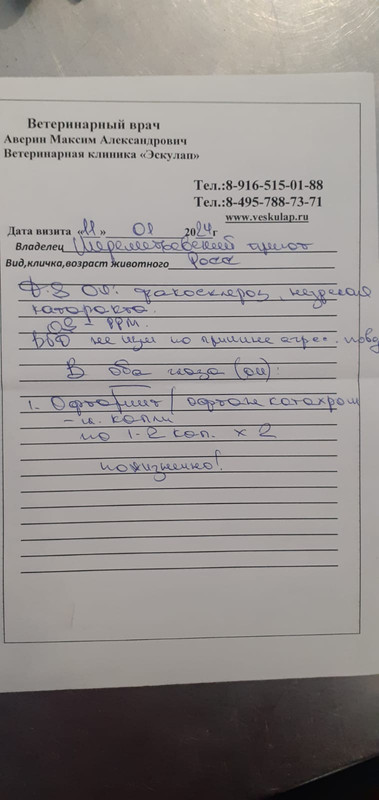 Ветеринарный врач
Аверин Максим Александрович
Ветеринарная клиника «Эскулап»
Тел.:8-916-515-01-88
Тел.:8-495-788-73-71
www.veskulap.ru
Дата визита «11» 01 2024г
Владелец Шереметьевский приют
Вид,кличка,возраст животного Росс
DS OD: факосклероз, незрелая
катаракта.
OS – PPM.
ВГД не изм по причине агрес. повед
В оба глаза (ou):
1. Офтофит / офтан катахром
– гл. капли
по 1-2 кап. х 2
пожизненно!